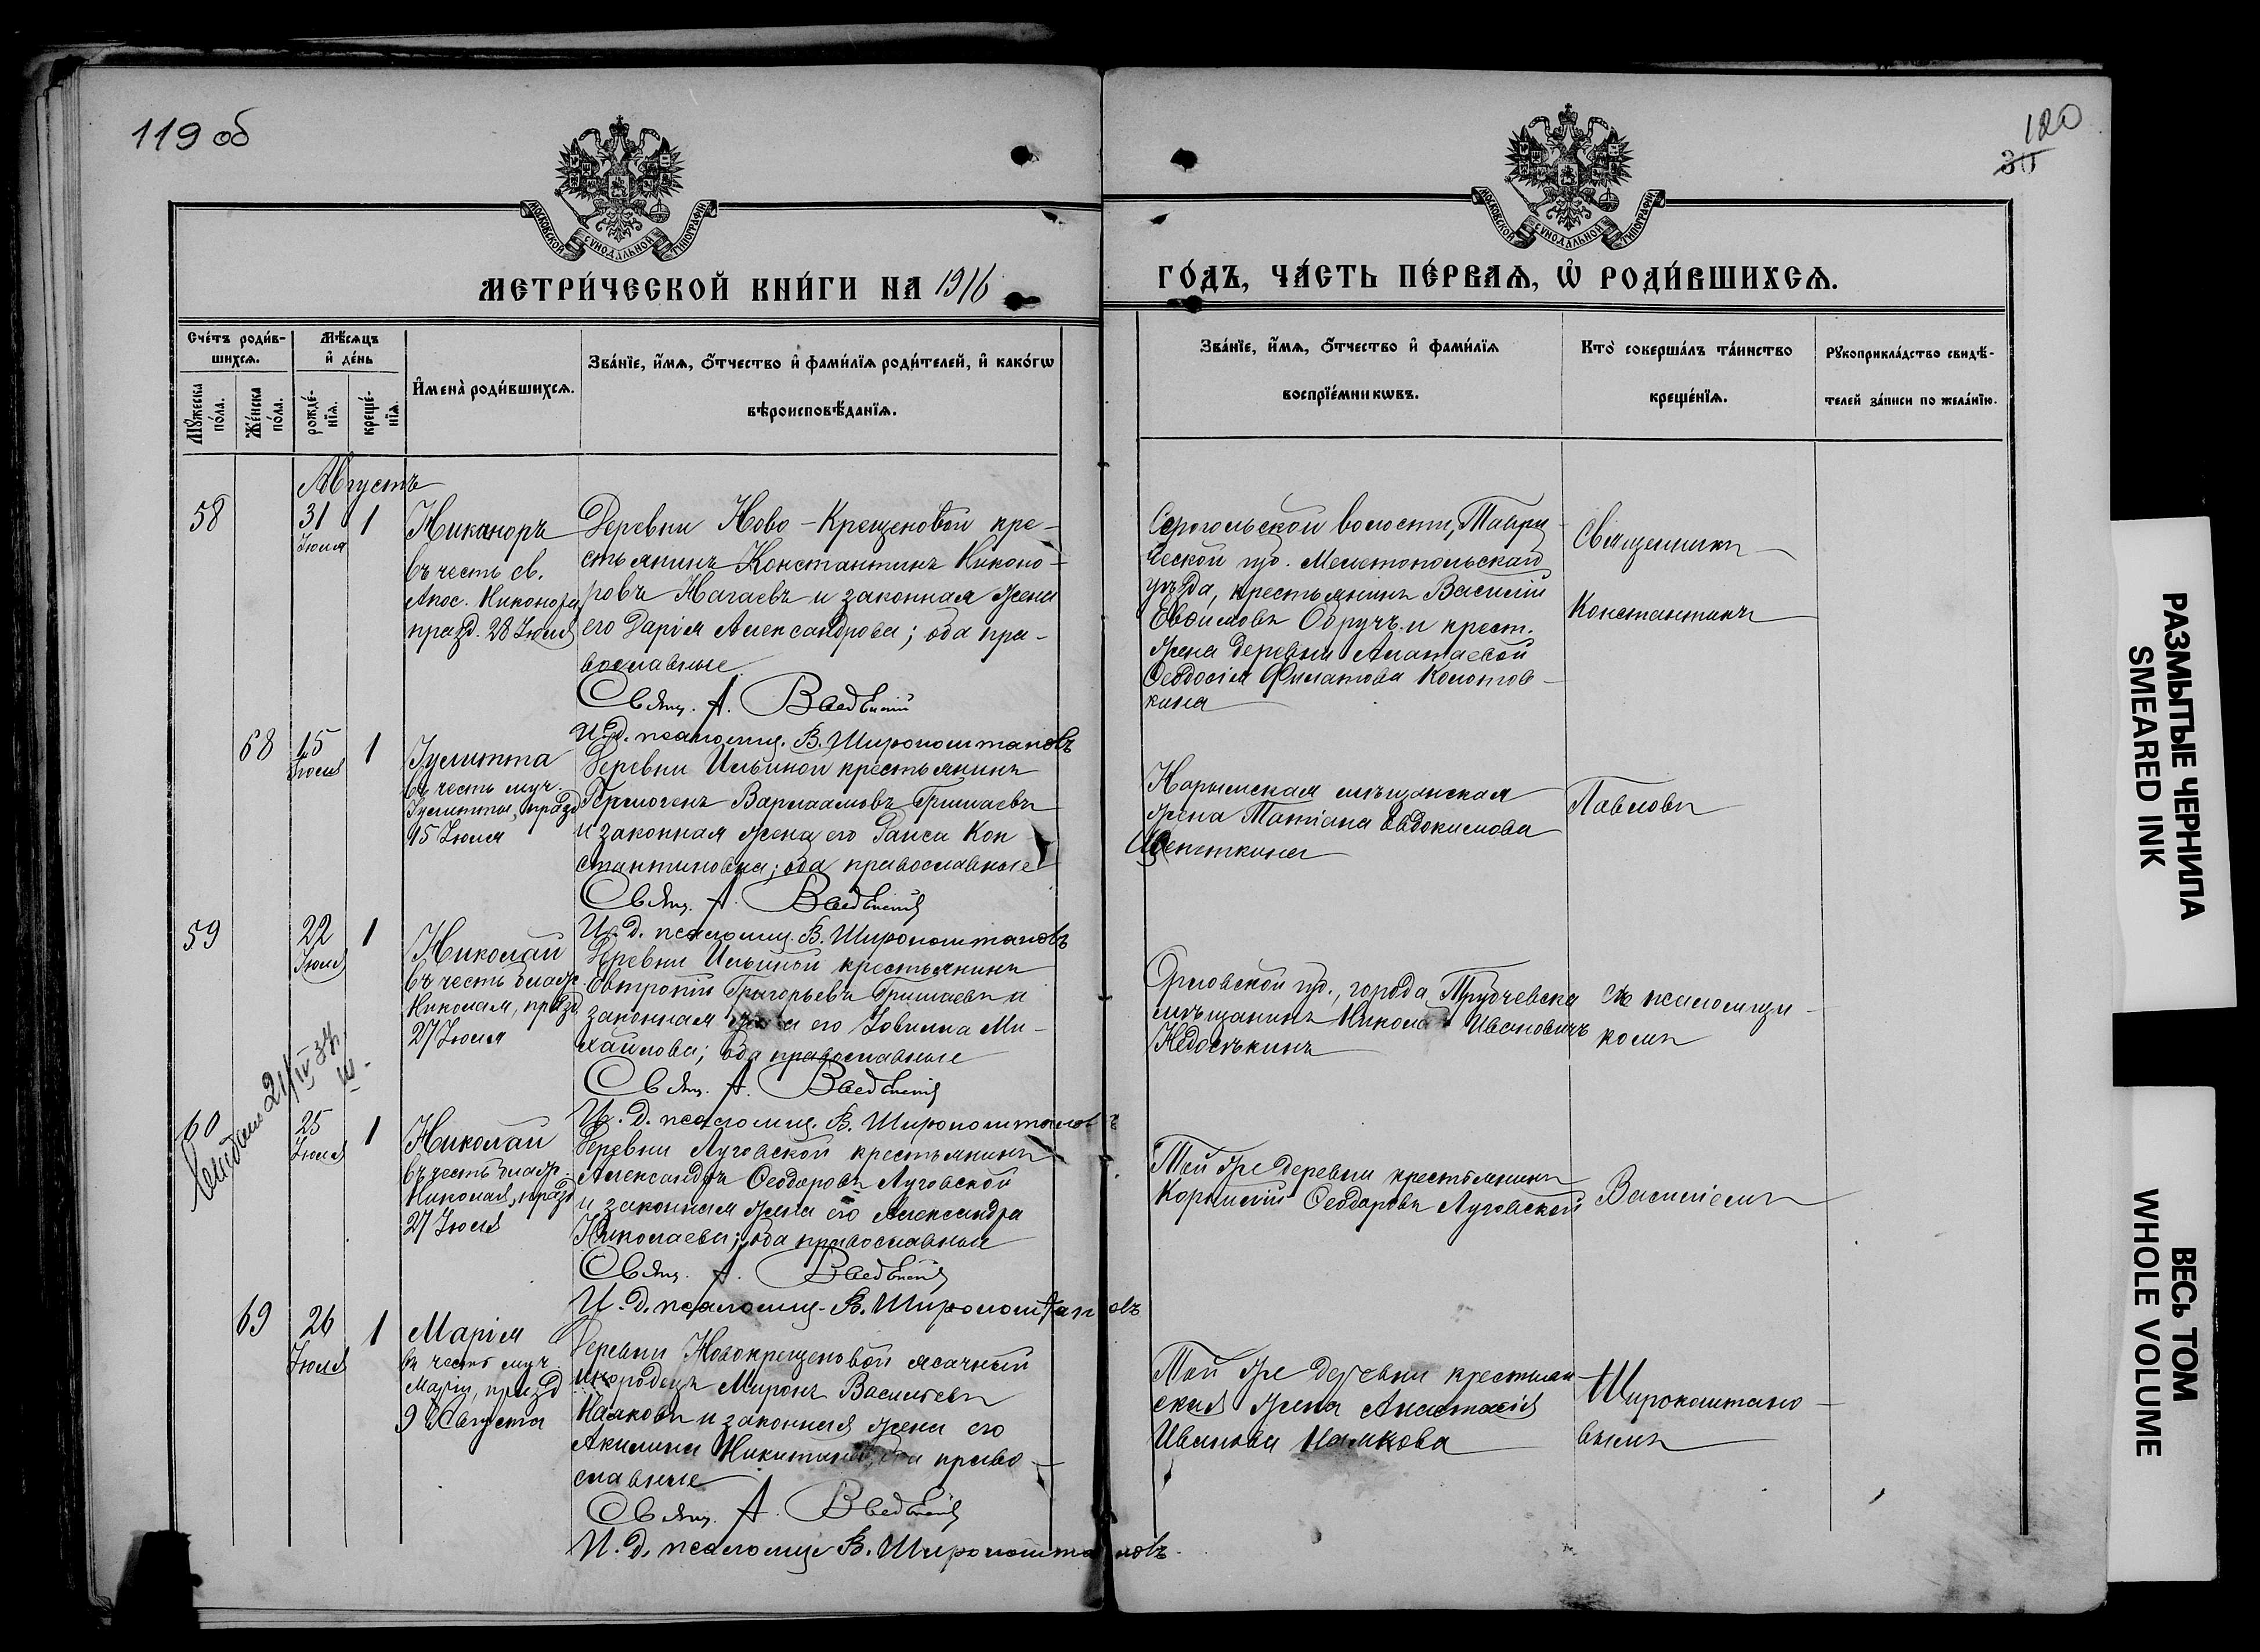 119 об
120
30
МОСКОВСКОЙ СѴНОДАЛЬНОЙ ТИПОГРАФІИ
МОСКОВСКОЙ СѴНОДАЛЬНОЙ ТИПОГРАФІИ
МЕТРИ́ЧЕСКОЙ КНИ́ГИ НА 1916
ГО́ДЪ, ЧА́СТЬ ПЕ́РВАѦ, Ѡ҆ РОДИ́ВШИХСѦ.
Сче́тъ роди́в-
шихсѧ.
Мꙋ́жеска по́ла.
Же́нска по́ла.
Мѣ́сѧцъ
и҆ де́нь
рожде́-
нїѧ.
креще́-
нїѧ.
И҆мена̀ роди́вшихсѧ.
Зва́нїе, и҆́мѧ, ѻ҆́тчество и҆ фами́лїѧ роди́телей, и҆ како́гѡ
вѣроисповѣ́данїѧ.
Зва́нїе, и҆́мѧ, ѻ҆́тчество и҆ фами́лїѧ
воспрїе́мникѡвъ.
Кто̀ соверша́лъ та́инство
креще́нїѧ.
Рꙋкоприкла́дство свидѣ́-
телей за́писи по жела́нїю.
Августъ
58
31
Іюля
1
Никаноръ
въ честь св.
Апос. Никонора,
празд. 28 Іюля
Деревни Ново-Крещеновой кре-
стьянинъ Константинъ Никоно-
ровъ Нагаевъ и законная жена
его Дарія Александрова; оба пра-
вославные
Свящ. А. Введенскій
И. д. псаломщ. В. Широкоштановъ
Серогольской волости, Таври-
ческой губ. Мелетопольскаго
уѣзда, крестьянинъ Василій
Евѳимовъ Обручъ и крест.
жена деревни Алатаевой
Ѳеодосія Филатова Колотов-
кина
Священникъ
Константинъ
68
15
Іюля
1
Іулитта
въ честь муч.
Іулитты, празд
15 Іюля
Деревни Ильиной крестьянинъ
Гермогенъ Варлаамовъ Гришаевъ
и законная жена его Раиса Кон
стантиновна; оба православные
Свящ. А. Введенскій
И. д. псаломщ. В. Широкоштановъ
Нарымская мѣщанская
жена Татіана Евдокимова
Павловъ
59
22
Іюля
1
Николай
въ честь благ.
Николая, празд
27 Іюля
Деревни Ильиной крестьянинъ
Евтропій Григорьевъ Гришаевъ и
законная жена его Іовилла Ми-
хайлова; оба православные
Свящ. А. Введенскій
И. д. псаломщ. В. Широкоштановъ
Орловской губ., города Трубчевска
мѣщанинъ Николай Ивановичъ
Недосѣкинъ
съ псаломщи-
комъ
60
21/IV 34
25
Іюля
1
Николай
въ честь благ.
Николая, празд
27 Іюля
Деревни Луговской крестьянинъ
Александръ Ѳеодоровъ Луговской
и законная жена его Александра
Николаева; оба православные
Свящ. А. Введенскій
И. д. псаломщ. В. Широкоштановъ
Той же деревни крестьянинъ
Корнилій Ѳеодоровъ Луговской
Василіемъ
69
26
Іюля
1
Марія
въ честь муч.
Маріи, празд
9 Августа
Деревни Новокрещеновой ясачный
инородецъ Миронъ Васильевъ
Наяковъ и законная жена его
Акилина Никитина, оба право-
славные
Свящ. А. Введенскій
И. д. псаломщ В. Широкоштановъ
Той же деревни крестьян-
ская жена Анастасія
Иванова Наякова
Широкоштано-
вымъ
РАЗМЫТЫЕ ЧЕРНИЛА
SMEARED INK
ВЕСЬ ТОМ
WHOLE VOLUME